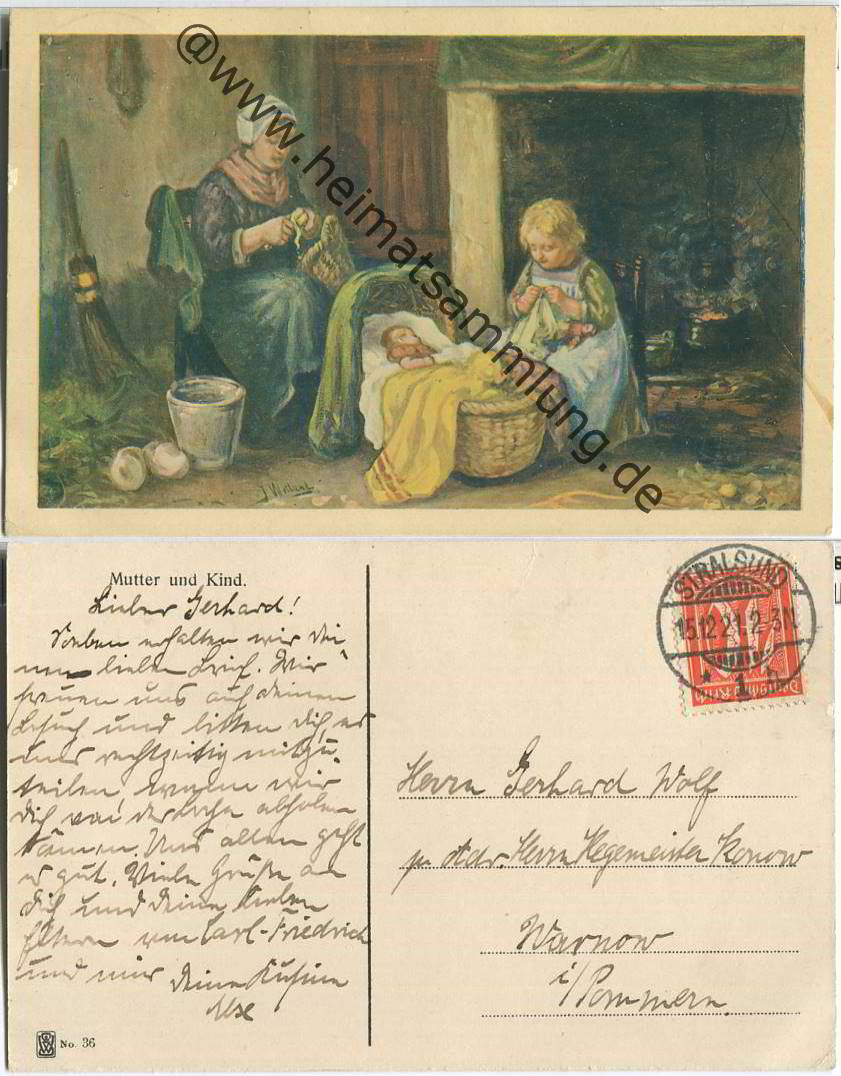 @www.heimatsammlung.de
J. Weiland
Mutter und Kind.
Lieber Gerhard!
Soeben erhalten wir dei
nen lieben Brief. Wir
freuen uns auf deinen
Besuch und bitten dich, es
uns rechtzeitig mitzu
teilen, wann wir
dich von der abholen
können. Uns allen geht
es gut. Viele Grüße an
dich und deine lieben
Eltern von Carl-Friedrich
und mir deine Kusine
Ilse
No. 36
STRALSUND
15.12.21.2-3N
* 1
Deutsches Reich
Herrn Gerhard Wolf
p. Adr. Herrn Hegemeister Konow
Warnow
i/Pommern.